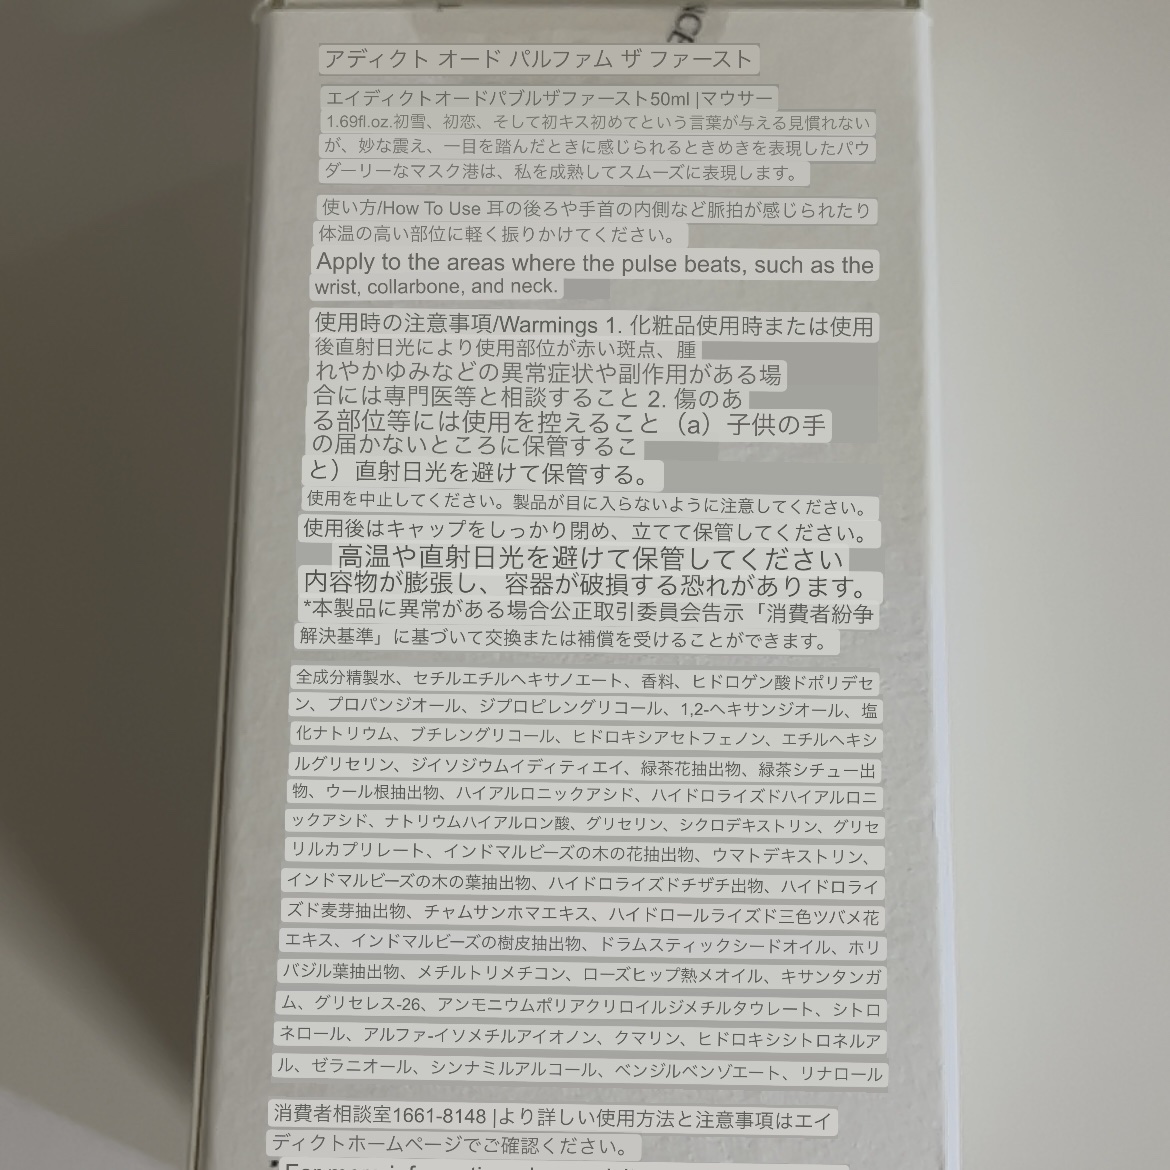 NCE
アディクト オード パルファム ザ ファースト
エイディクトオードパブルザファースト50ml |マウサー
1.69fl.oz.初雪、初恋、そして初キス初めてという言葉が与える見慣れない
が、妙な震え、一目を踏んだときに感じられるときめきを表現したパウ
ダーリーなマスク港は、私を成熟してスムーズに表現します。
使い方/How To Use 耳の後ろや手首の内側など脈拍が感じられたり
体温の高い部位に軽く振りかけてください。
Apply to the areas where the pulse beats, such as the
wrist, collarbone, and neck.
使用時の注意事項/Warmings 1. 化粧品使用時または使用
後直射日光により使用部位が赤い斑点、腫
れやかゆみなどの異常症状や副作用がある場
合には専門医等と相談すること 2. 傷のあ
る部位等には使用を控えること（a）子供の手
の届かないところに保管するこ
と）直射日光を避けて保管する。
使用を中止してください。製品が目に入らないように注意してください。
使用後はキャップをしっかり閉め、立てて保管してください。
高温や直射日光を避けて保管してください
内容物が膨張し、容器が破損する恐れがあります。
*本製品に異常がある場合公正取引委員会告示「消費者紛争
解決基準」に基づいて交換または補償を受けることができます。
全成分精製水、セチルエチルヘキサノエート、香料、ヒドロゲン酸ドポリデセ
ン、プロパンジオール、ジプロピレングリコール、1,2-ヘキサンジオール、塩
化ナトリウム、ブチレングリコール、ヒドロキシアセトフェノン、エチルヘキシ
ルグリセリン、ジイソジウムイディティエイ、緑茶花抽出物、緑茶シチュー出
物、ウール根抽出物、ハイアルロニックアシド、ハイドロライズドハイアルロニ
ックアシド、ナトリウムハイアルロン酸、グリセリン、シクロデキストリン、グリセ
リルカプリレート、インドマルビーズの木の花抽出物、ウマトデキストリン、
インドマルビーズの木の葉抽出物、ハイドロライズドチザチ出物、ハイドロライ
ズド麦芽抽出物、チャムサンホマエキス、ハイドロールライズド三色ツバメ花
エキス、インドマルビーズの樹皮抽出物、ドラムスティックシードオイル、ホリ
バジル葉抽出物、メチルトリメチコン、ローズヒップ熱メオイル、キサンタンガ
ム、グリセレス-26、アンモニウムポリアクリロイルジメチルタウレート、シトロ
ネロール、アルファ-イソメチルアイオノン、クマリン、ヒドロキシシトロネルア
ル、ゼラニオール、シンナミルアルコール、ベンジルベンゾエート、リナロール
消費者相談室1661-8148 |より詳しい使用方法と注意事項はエイ
ディクトホームページでご確認ください。